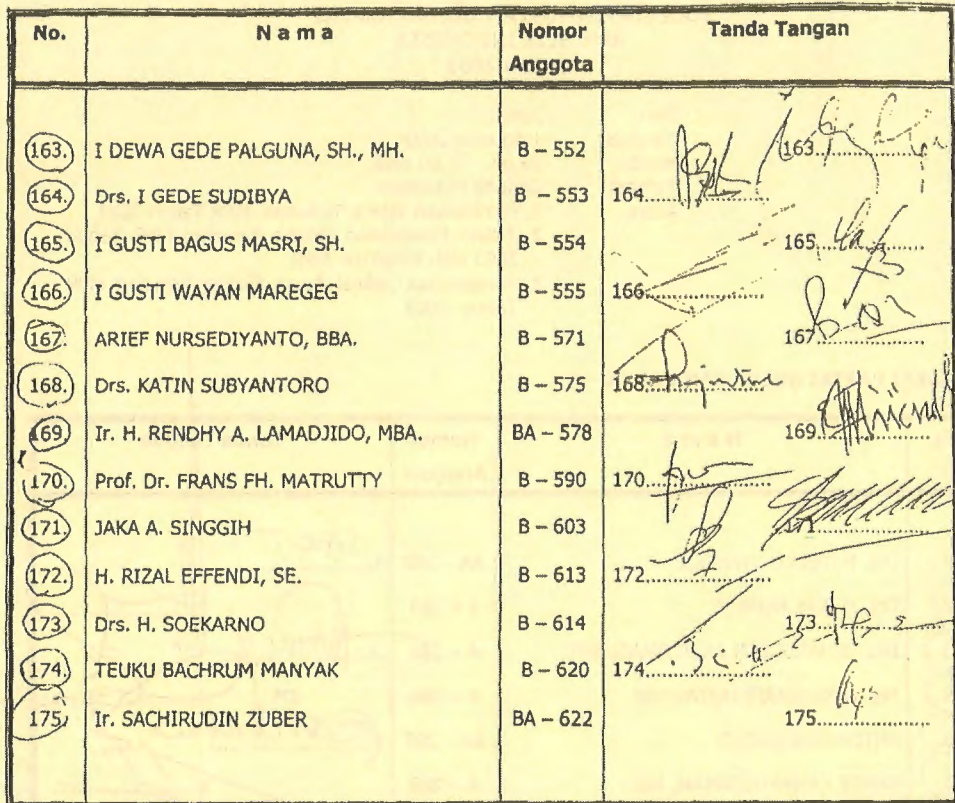 No. N a m a Nomor Anggota Tanda Tangan
163. I DEWA GEDE PALGUNA, SH., MH. B – 552 163
164. Drs. I GEDE SUDIBYA B – 553 164
165. I GUSTI BAGUS MASRI, SH. B – 554 165
166. I GUSTI WAYAN MAREGEG B – 555 166
167. ARIEF NURSEDIYANTO, BBA. B – 571 167
168. Drs. KATIN SUBYANTORO B – 575 168
169. Ir. H. RENDHY A. LAMADJIDO, MBA. BA – 578 169
170. Prof. Dr. FRANS FH. MATRUTTY B – 590 170
171. JAKA A. SINGGIH B – 603 171
172. H. RIZAL EFFENDI, SE. B – 613 172
173. Drs. H. SOEKARNO B – 614 173
174. TEUKU BACHRUM MANYAK B – 620 174
175. Ir. SACHIRUDIN ZUBER BA – 622 175